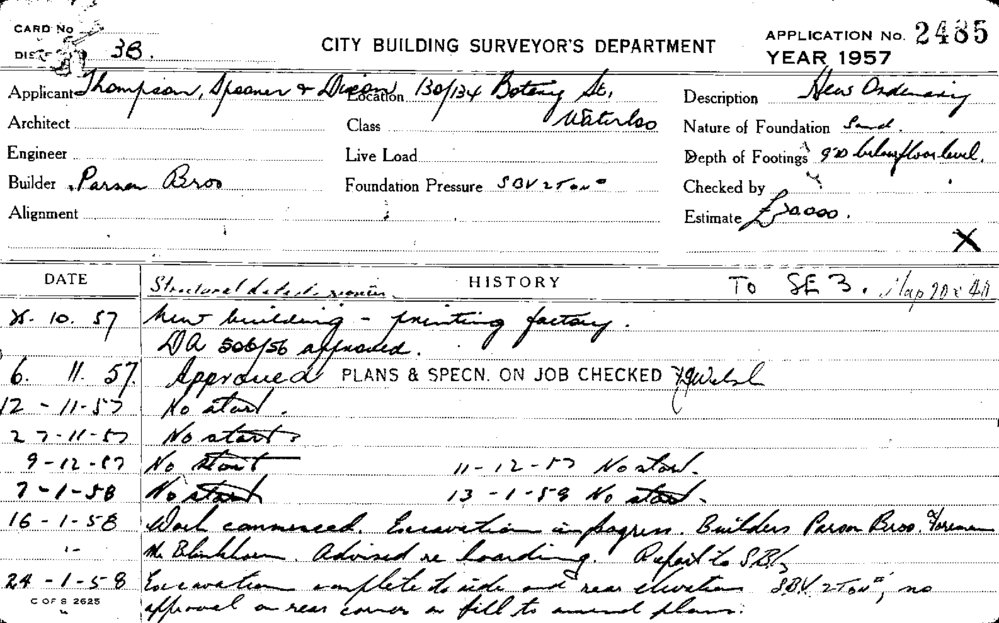 CARD No
CITY BUILDING SURVEYOR'S DEPARTMENT
APPLICATION No. 2485
DIS 3B.
YEAR 1957
Applicant Thompson, Spooner & Dixon Location 130/134 Botany St, Waterloo
Description New Ordinary
Architect
Class
Nature of Foundation Sand.
Engineer
Live Load
Depth of Footings below floor level.
Builder Parson Bros
Foundation Pressure SBV 2 Ton
Checked by
Alignment
Estimate £
X
DATE
HISTORY
Structural
TO SE 3.
10. 57 New building - printing factory.
DA 506/56 approved.
6. 11. 57. Approved PLANS & SPECN. ON JOB CHECKED
12 - 11 - 57 No start.
27 - 11 - 57 No start.
9 - 12 - 57 No start 11 - 12 - 57 No start.
7 - 1 - 58 No start 13 - 1 - 58 No start.
16 - 1 - 58 Work commenced. Excavation in progress. Builders Parson Bros. Foreman
Mr Advised re hoarding. Report to
24 - 1 - 58 Excavation complete to side and rear elevation SBV 2 Ton", no
C OF S 2625
approval on rear corner on fill to amend plans.